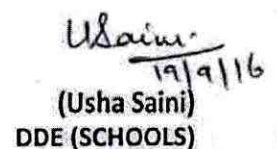 USaini
19/9/16
(Usha Saini)
DDE (SCHOOLS)